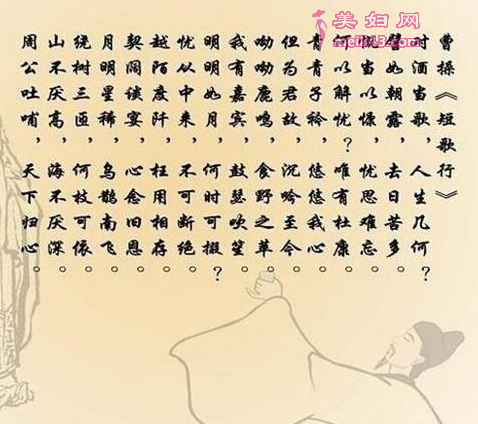 曹操《短歌行》
对酒当歌,人生几何?
譬如朝露,去日苦多。
慨当以慷,忧思难忘。
何以解忧?唯有杜康。
青青子衿,悠悠我心。
但为君故,沉吟至今。
呦呦鹿鸣,食野之苹。
我有嘉宾,鼓瑟吹笙。
明明如月,何时可掇?
忧从中来,不可断绝。
越陌度阡,枉用相存。
契阔谈宴,心念旧恩。
月明星稀,乌鹊南飞。
绕树三匝,何枝可依。
山不厌高,海不厌深。
周公吐哺,天下归心。
美妇网